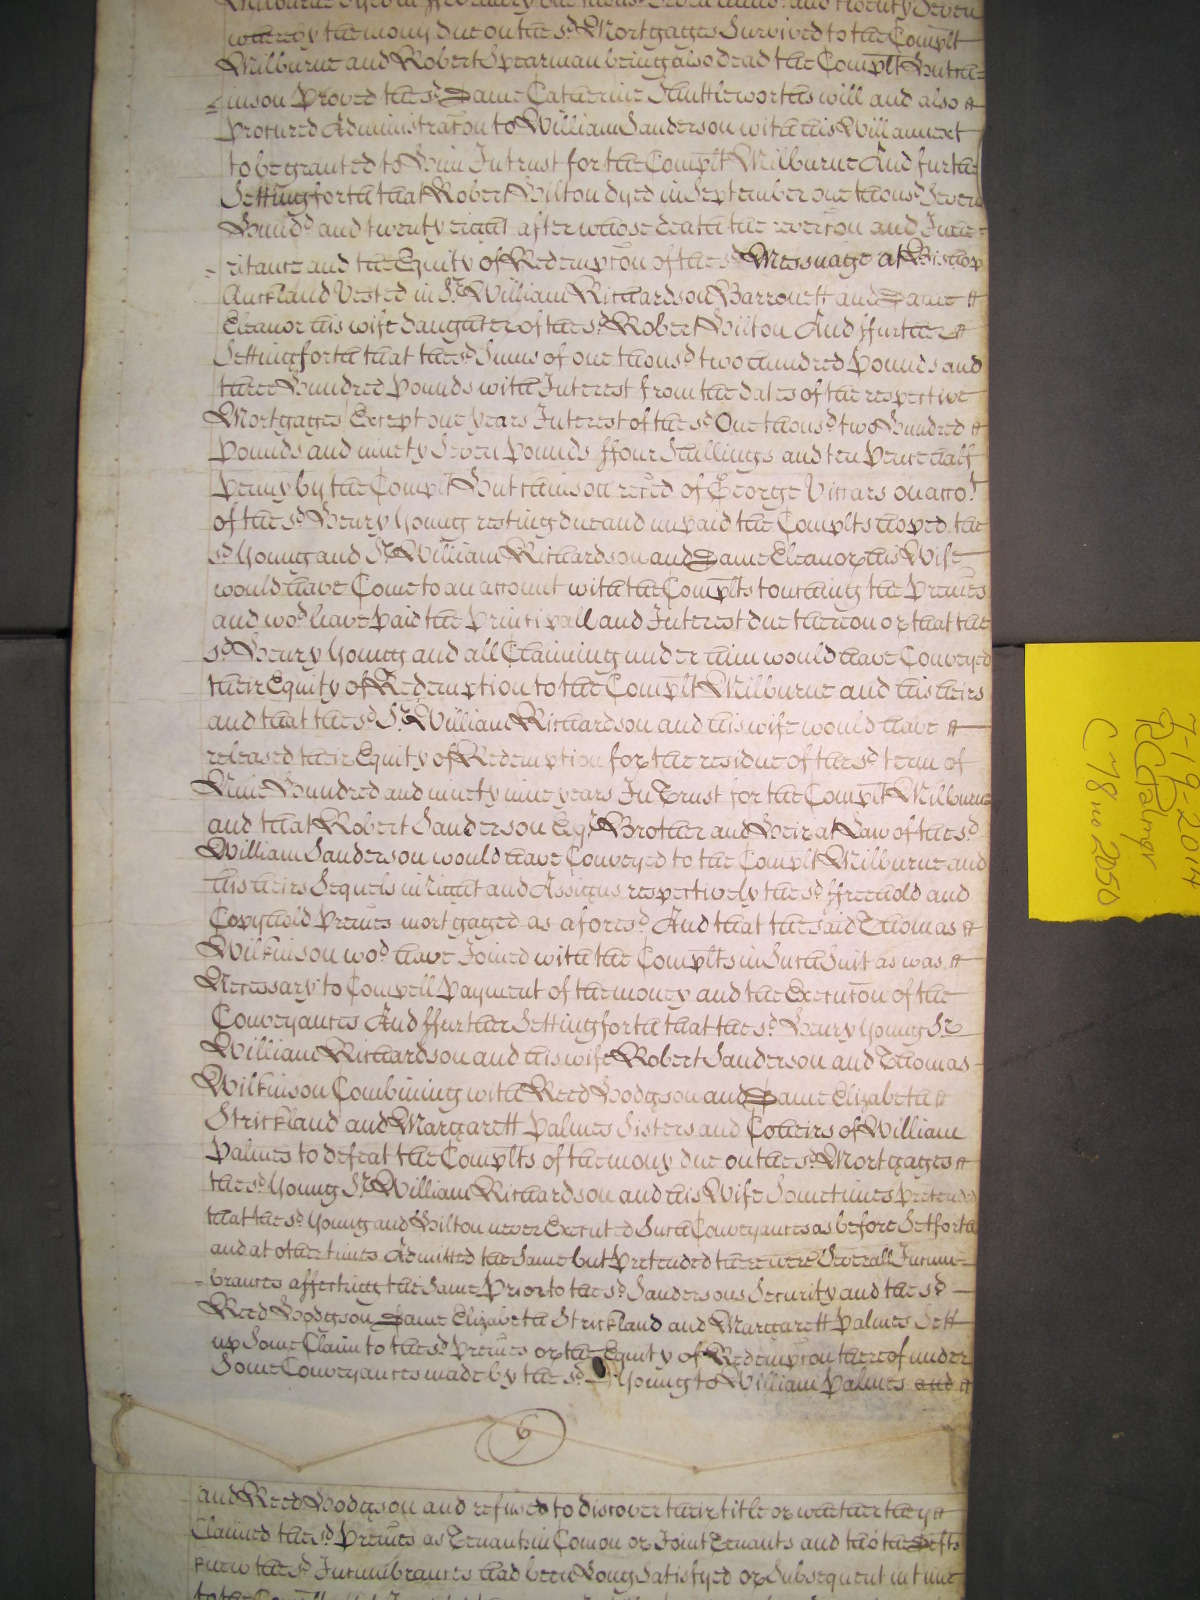 Milburne dyed in ffebruary one thousd Seven hund. and twenty Seven
whereby the mony due on the sd. Mortgages Survived to the Complt
Milburne and Robert Spearman being also dead the Complt Hutch=
=inson Proved the sd. Dame Catherine Shuttleworths will and also
Procured Administracon to William Sanderson with his Will annext
to be granted to Him In trust for the Complt Milburne And further
Setting forth that Robert Hilton dyed in September one thousd. Seven
Hundd. and twenty eight after whose death the revercon and Inhe=
=ritance and the Equity of Redempcon of the sd. Messuage at Bishop
Auckland Vested in Sr. William Richardson Barronett and Dame
Eleanor his wife daughter of the sd. Robert Hilton And ffurther
Setting forth that the sd. Sums of one thousd. two hundred Pounds and
three Hundred Pounds with Interest from the dates of the respective
Mortgages Except one years Interest of the sd. One thousd. two Hundred
Pounds and ninety Seven Pounds ffour Shillings and ten Pence half
Penny by the Complt Hutchinson reced of George Vicars on accot.
of the sd. Henry Young resting due and unpaid the Complts hoped the
sd. Young and Sr. William Richardson and Dame Eleanor his Wife
would have Come to an account with the Complts touching the Premes
and wod. have Paid the Principall and Interest due thereon or that the
sd. Henry Young and all Claiming under him would have Conveyed
their Equity of Redemption to the Complt Milburne and his heirs
and that the sd. Sr. William Richardson and his wife would have
released their Equity of Redemption for the residue of the sd. term of
Nine Hundred and ninety nine years In Trust for the Complt Milburne
and that Robert Sanderson Esqr. Brother and Heir at Law of the sd.
William Sanderson would have Conveyed to the Complt Milburne and
his heirs Sequels in right and Assigns respectively the sd. ffreehold and
Copyhold Premes mortgaged as aforesd. And that the said Thomas
Wilkinson wod. have Joined with the Complts in Such Suit as was
Necessary to Compell Payment of the money and the Execucon of the
Conveyances And ffurther Setting forth that the sd. Henry Young Sr.
William Richardson and his wife Robert Sanderson and Thomas
Wilkinson Combining with Reed Hodgson and Dame Elizabeth
Strickland and Margarett Palmes Sisters and Coheirs of William
Palmes to defeat the Complts of the mony due on the sd. Mortgages
the sd. Young Sr. William Richardson and his Wife Sometimes Pretended
that the sd. Young and Hilton never Executed Such Conveyances as before Setforth
and at other times Admitted the Same but Pretended there were Severall Incum=
=brances affecting the Same Prior to the sd. Sandersons Security and the sd.
Reed Hodgson Dame Elizabeth Strickland and Margarett Palmes Sett
up Some Claim to the sd. Premes or the Equity of Redempcon thereof under
Some Conveyances made by the sd. Young to William Palmes and
6
and Reed Hodgson and refused to discover their title or whether they
Claimed the sd. Premes as Tenants in Comon or Joint Tenants and tho' the Defts
knew the sd. Incumbrances had been Long Satisfyed or Subsequent in time
7-19-2014
RCPalmer
C 78 no 2050